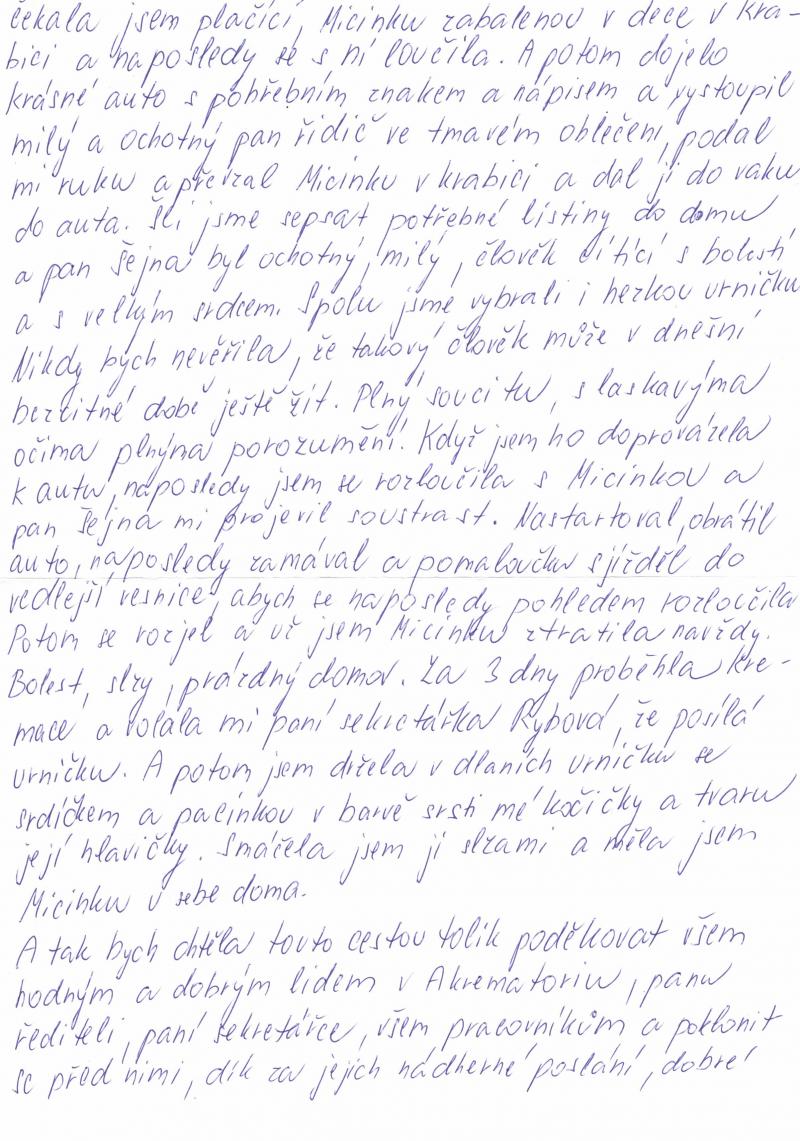 čekala jsem plačící, Micinku zabalenou v dece v kra-
bici a naposledy se s ní loučila. A potom dojelo
krásné auto s pohřebním znakem a nápisem a vystoupil
milý a ochotný pan řidič ve tmavém oblečení, podal
mi ruku a převzal Micinku v krabici a dal ji do vaku
do auta. Šli jsme sepsat potřebné listiny do domu
a pan Šejna byl ochotný, milý, člověk cítící s bolestí
a s velkým srdcem. Spolu jsme vybrali i hezkou urničku
Nikdy bych nevěřila, že takový člověk může v dnešní
bezcitné době ještě žít. Plný soucitu, s laskavýma
očima plnýma porozumění. Když jsem ho doprovázela
k autu, naposledy jsem se rozloučila s Micinkou a
pan Šejna mi projevil soustrast. Nastartoval, obrátil
auto, naposledy zamával a pomaloučku sjížděl do
vedlejší vesnice, abych se naposledy pohledem rozloučila
Potom se rozjel a už jsem Micinku ztratila navždy.
Bolest, slzy, prázdný domov. Za 3 dny proběhla kre-
mace a volala mi paní sekretářka Rybová, že posílá
urničku. A potom jsem držela v dlaních urničku se
srdíčkem a pacinkou v barvě srsti mé kočičky a tvaru
její hlavičky. Smáčela jsem ji slzami a měla jsem
Micinku u sebe doma.
A tak bych chtěla touto cestou tolik poděkovat všem
hodným a dobrým lidem v Akrematoriu, panu
řediteli, paní sekretářce, všem pracovníkům a poklonit
se před nimi, dík za jejich nádherné poslání, dobré